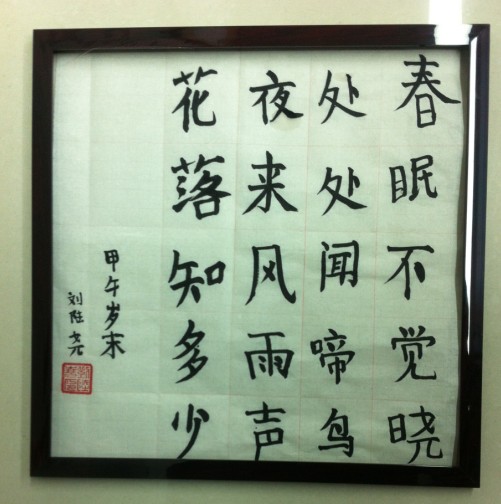 春眠不觉晓
处处闻啼鸟
夜来风雨声
花落知多少
甲午岁末
刘胜尧